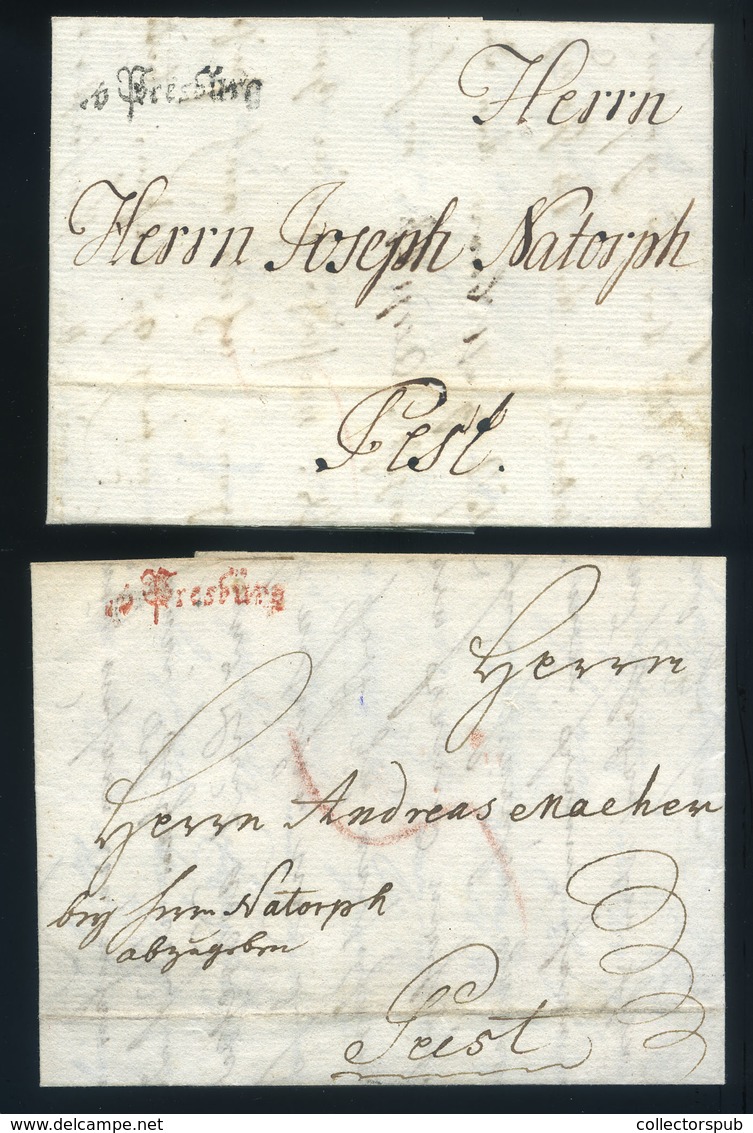 v Presbürg
Herrn
Herrn Joseph Natorph
Pest.
v Presbürg
Herrn
Herrn Andreas Macher
bey Herrn Natorph
abzugeben
Peest
delcampe.net
collectorspub